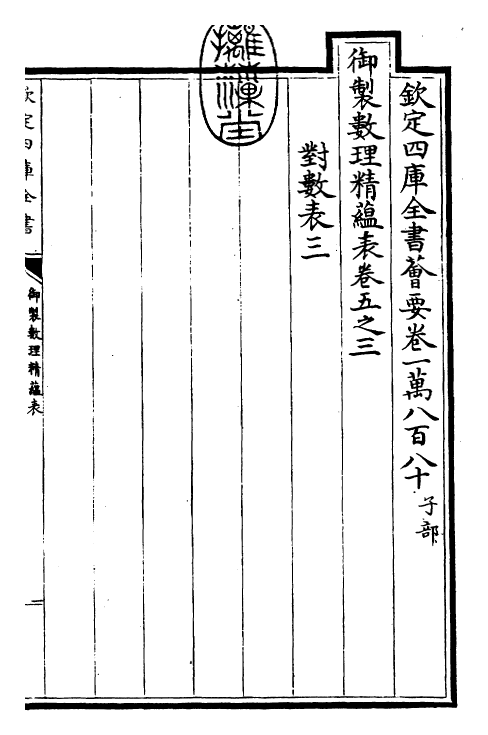 欽定四庫全書薈要卷一萬八百八十子部
御製數理精蘊表卷五之三
對數表三
欽定四庫全書
御製數理精蘊表
一
摛藻堂